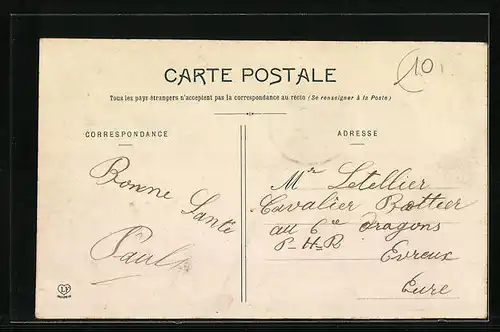 10
CARTE POSTALE
Tous les pays étrangers n'acceptent pas la correspondance au recto (Se renseigner à la Poste)
CORRESPONDANCE
Bonne
Santé
Paul
ADRESSE
Mr Letellier
Cavalier Bottier
au 6e dragons
P-H-R
Evreux
Eure